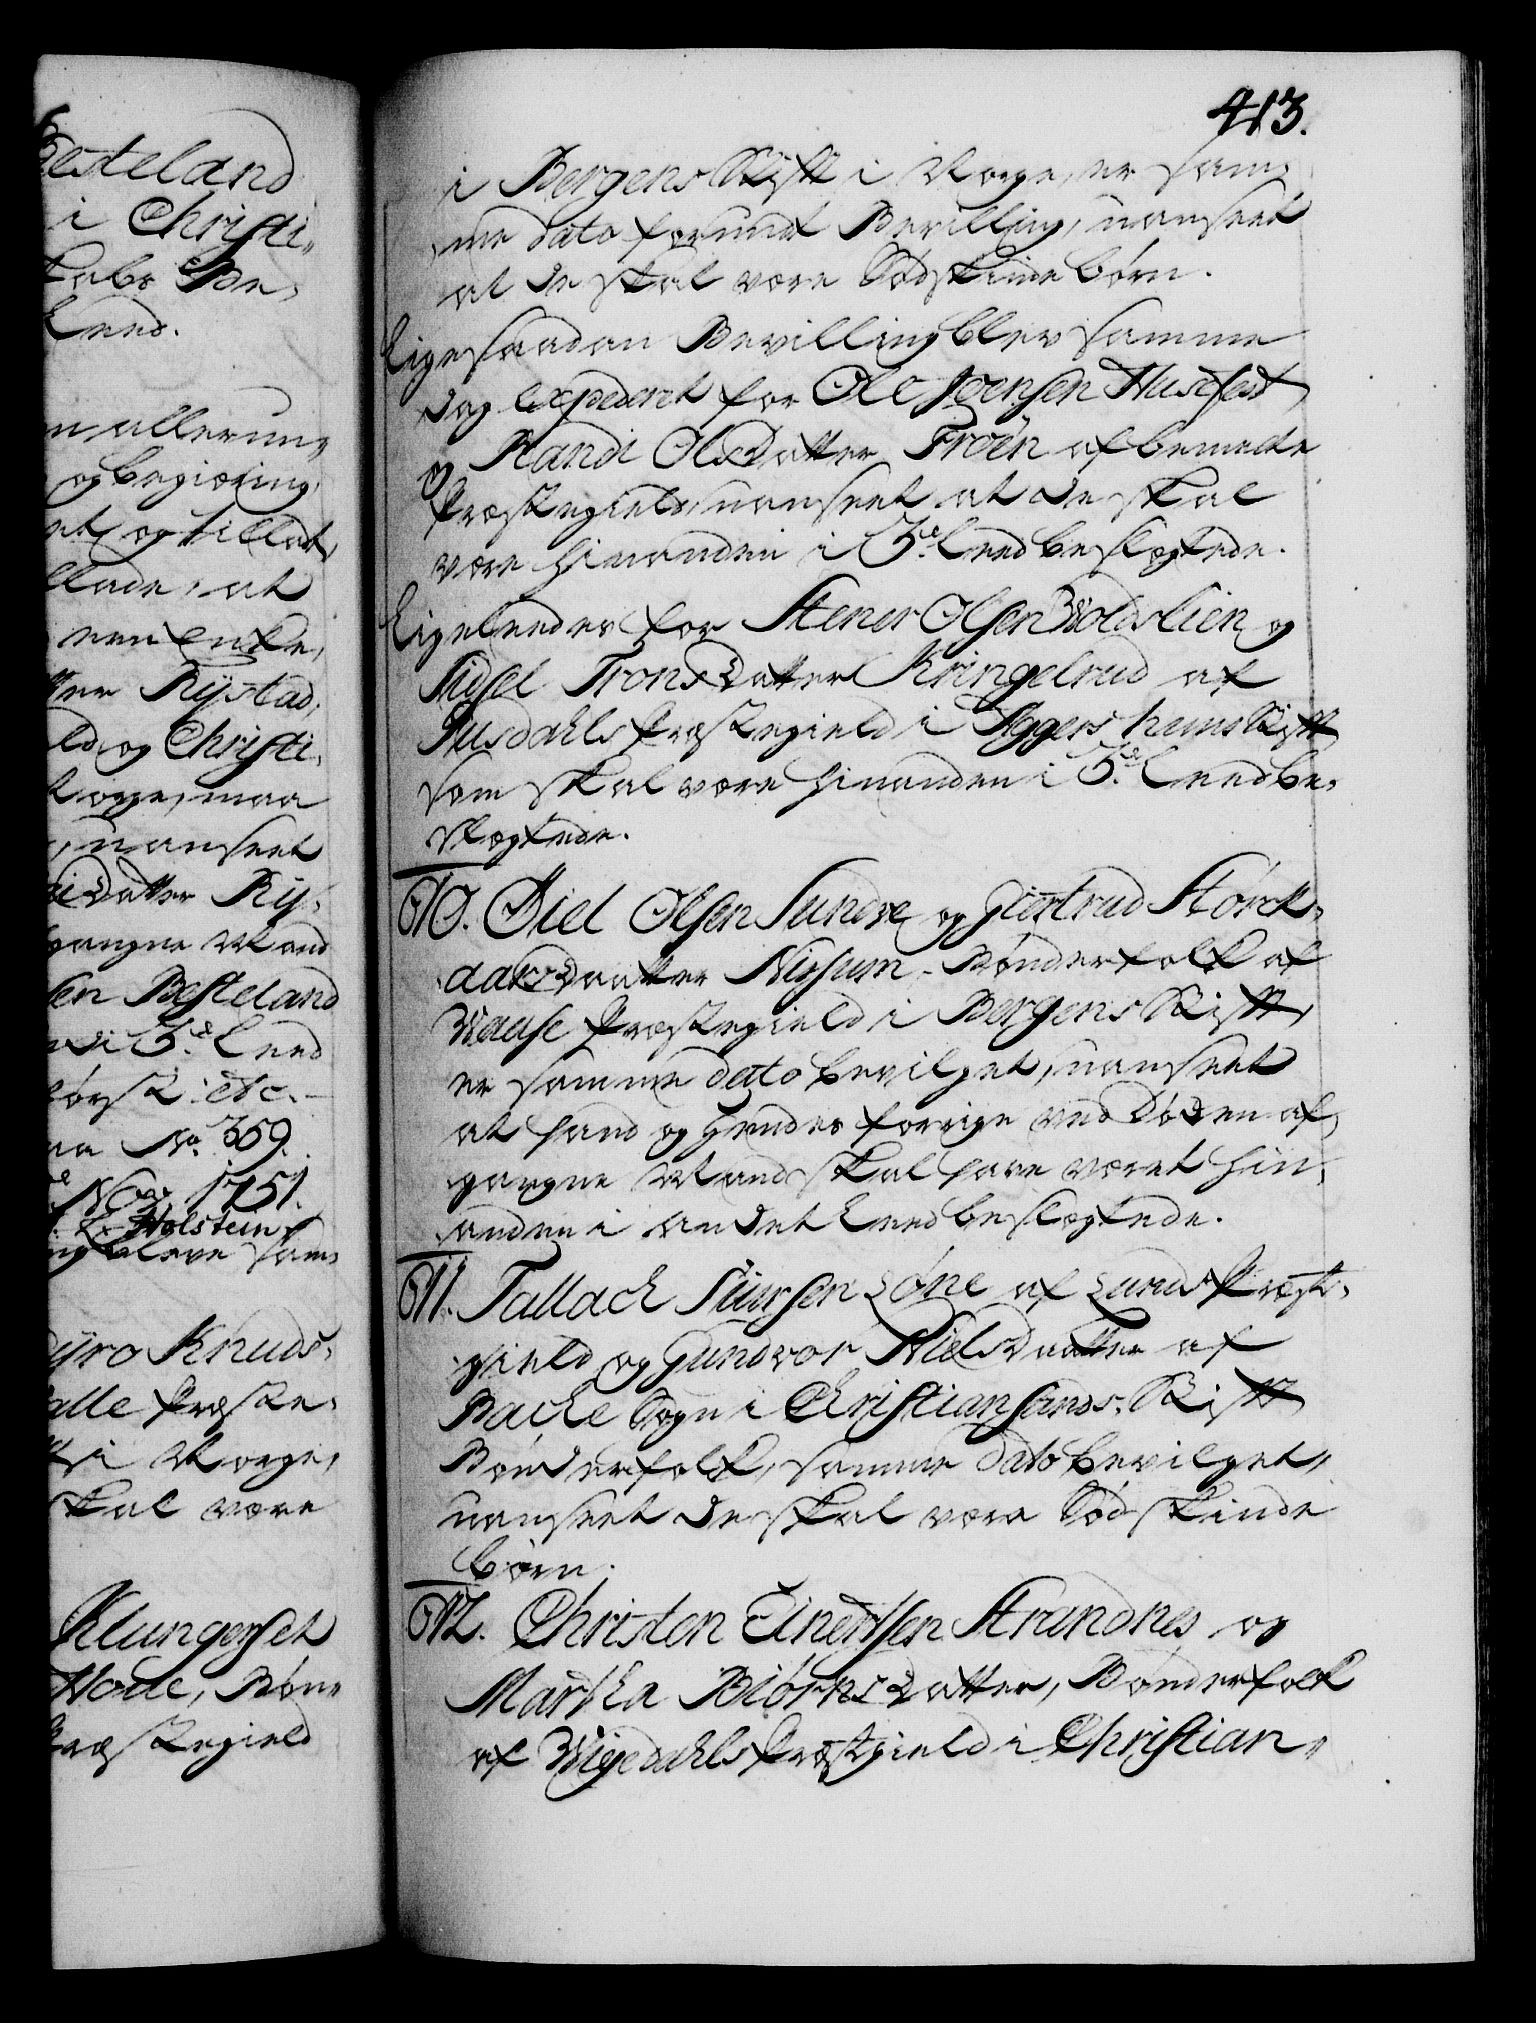 413.
i Bergens Stift i Norge, er sam,
me dato forundt Bevilling, uanseet
at de skal være Sødskinde børn.
Ligesaadan Bevilling blev samme
dag expederet for Ole Joensen Husefest
og Randi OlsDatter Troën af bemelte
Præstegield, uanseet at de skal
være hinanden i 3.de Leed beslægtede.
Ligeleedes for Stener Olsen Woldslien og
Sidsel TronsDatter Kringelrud af
Gusdahls Præstegield i Aggershuus Stift
som skal være hinanden i 3.de Leed be,
slægtede.
610. Õiel Olsen Sundve og Giertrud Storck,
aarsDaatter Nissum. Bønderfolk af
Wause Præstegield i Bergens Stift,
er samme dato bevilget, uanseet
at hand og hendes forrige ved Døden af,
gangne Mand skal have været hin,
anden i andet Leed beslægtede.
611. Tallack Siursen Lóne af Lunds Præste,
gield og Gundvor NielsDaatter af
Backe Sogn i Christiansands Stift
Bønderfolk, samme dato bevilget,
uanseet de skal være Sødskinde
børn.
612. Christen Einersen Strandnes og
Martha BiörnsDatter, Bønderfolk
af Wigedahls Præstegield i Christian,,
Besteland
i Christi,,
Leed.
n allerun,
og begiæring
et og tillat,
llade, at
ter Rÿstad,
ld og Christi,
Norge, maa
, uanseet
Datter Rÿ,
gangne Mand
sen Besteland
i 3.de Leed
etc.
No. 369.
Nov. 1751.
Holstein
blev sam,
Knuds,
alle Præste,
i Norge,
skal være
Klungerset
Hode, Bøn,
Præstegield